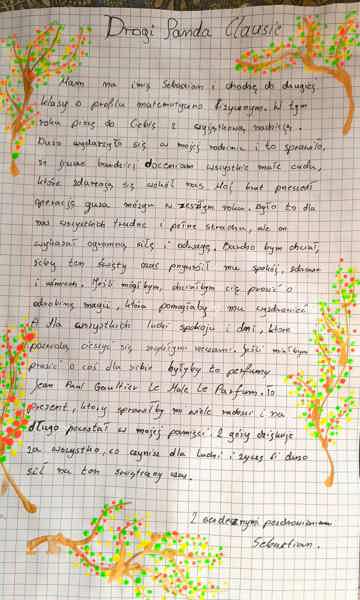 Drogi Panda Clausie
Mam na imię Sebastian i chodzę do drugiej
klasy o profilu matematyczno fizycznym. W tym
roku piszę do Ciebie z wyjątkową nadzieją.
Dużo wydarzyło się w mojej rodzinie i to sprawiło,
że jeszcze bardziej doceniam wszystkie małe cuda,
które zdarzają się wokół nas. Mój brat przeszedł
operację guza mózgu w zeszłym roku. Było to dla
nas wszystkich trudne i pełne strachu, ale on
wykazał ogromną siłę i odwagę. Bardzo bym chciał,
żeby ten święty czas przyniósł mu spokój, zdrowie
i uśmiech. Jeśli mógłbym, chciałbym cię prosić o
odrobinę magii, która pomogłaby mu wyzdrowieć
A dla wszystkich ludzi spokoju i dni, które
pozwolą cieszyć się zwykłymi rzeczami. Jeśli miałbym
prosić o coś dla siebie byłyby to perfumy
Jean Paul Gaultier Le Male Le Parfum. To
prezent, który sprawiłby mi wiele radości i na
długo pozostał w mojej pamięci. Z góry dziękuję
za wszystko, co czynisz dla ludzi i życzę Ci dużo
sił na ten świąteczny czas.
Z serdecznymi pozdrowieniami
Sebastian.